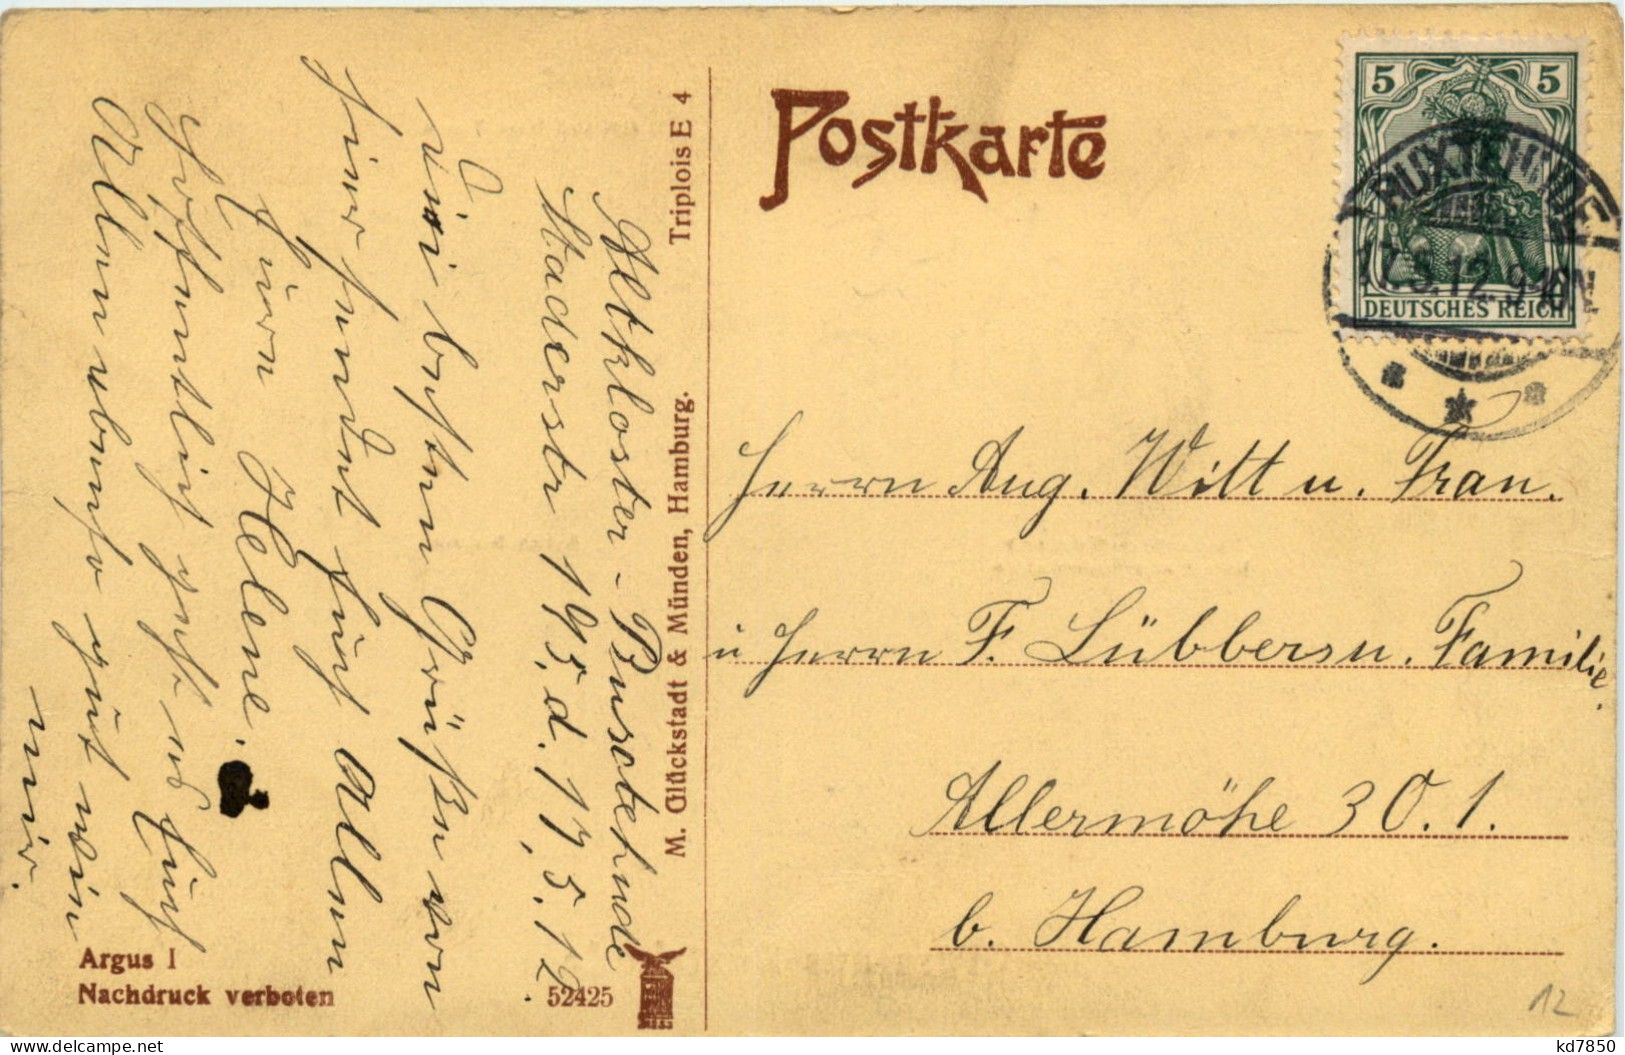 Postkarte
5 5
BUXTEHUDE
17.5.12. 9-10N
DEUTSCHES REICH
Herrn Aug. Witt u. Frau.
u Herrn F. Lübbers u. Familie.
Allermöhe 30. 1.
b. Hamburg.
12
Triplois E 4
M. Glückstadt & Münden, Hamburg.
Altkloster-Buxtehude
Staderstr 195. d. 17, 5. 12.
Die besten Grüße von
hier sendet Euch Allen
Eure Helene.
Hoffentlich geht es Euch
Allen ebenso gut wie
mir.
Argus I
Nachdruck verboten
52425
kd7850
www.delcampe.net